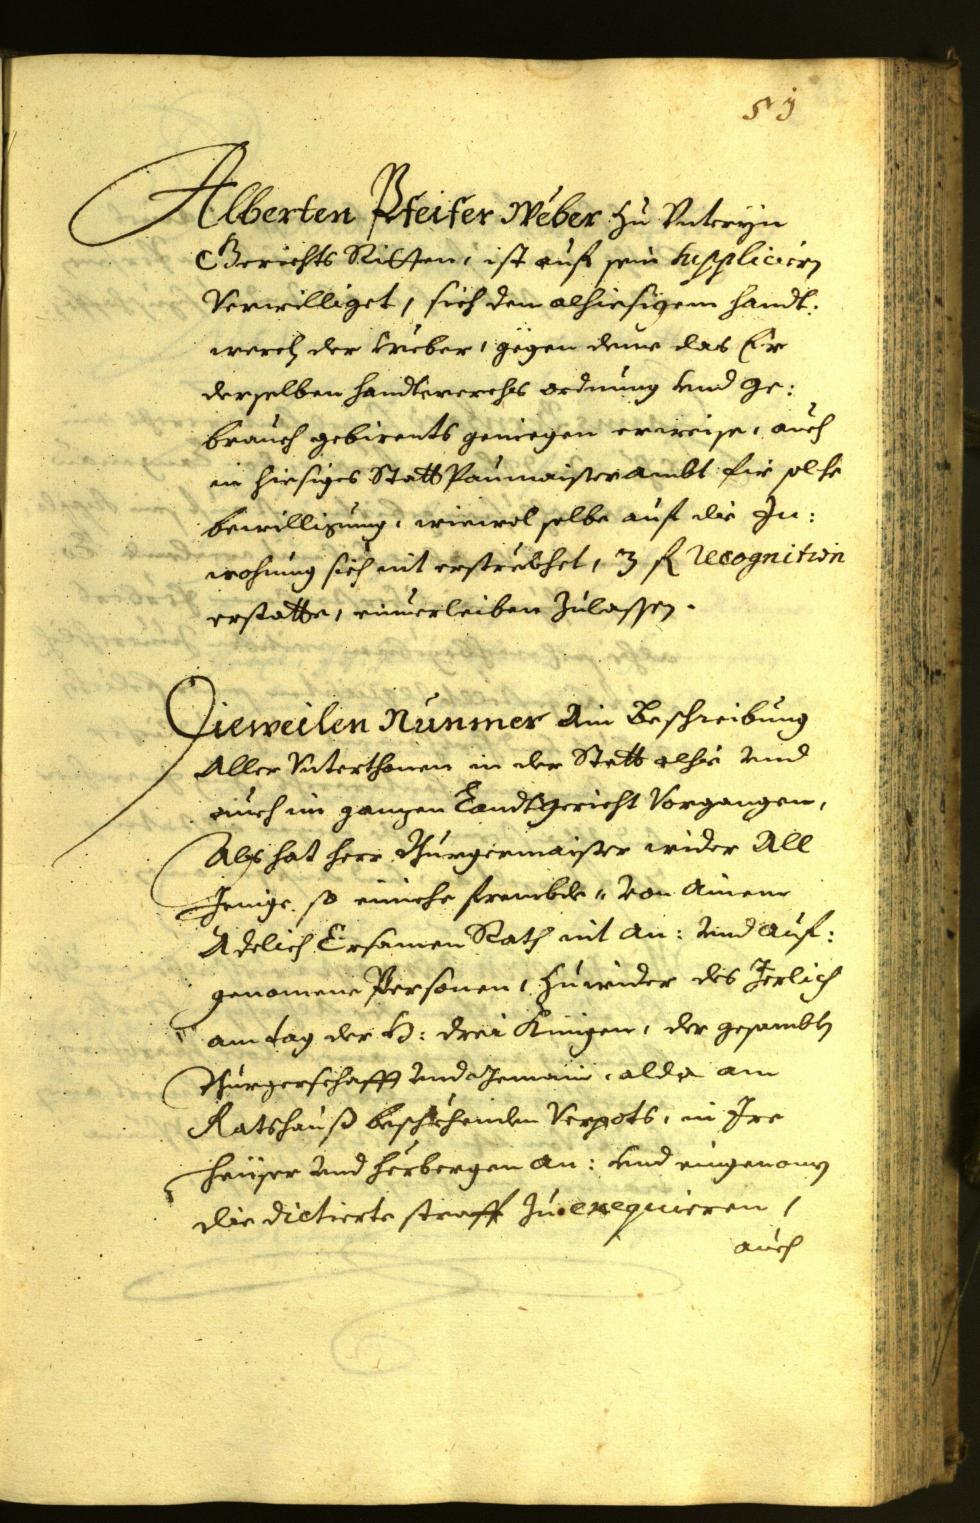 59
Alberten Pfeifer Weber zu Vnterÿn
Gerichts Ritten, ist auf sein suppliciern
Verwilliget, sich dem alhiesigem handt:
werch der Weber, gegen deme das Er
derselben handtwerchs ordnung vnd ge:
brauch gebirents geniegen erweise, auch
in hiesiges Statt Paumaisterambt fir solche
bewilligung, wiewol selbe auf die In:
wohnung sich nit erströkhet, 3 fl Recognition
erstatte, einuerleiben Zulassen.
Dieweilen Nunmer Ain Beschreibung
Aller Vnterthonen in der Statt alhie vnd
auch im ganzen Landtgericht Vorgangen,
Als hat herr Burgermaister wider All
Jenige so einiche frembde von Ainem
Adelich Ersamen Rath nit An: vnd Auf:
genomene Personen, zuwider des Jerlich
am tag der H: drei Künigen, der gesambten
Burgerschafft vnd Gemain, alda am
Rathauß beschehenden Verpots, in Jre
heüser vnd herbergen An: vnd eingenomen
die dictierte straff zu exequieren,
auch